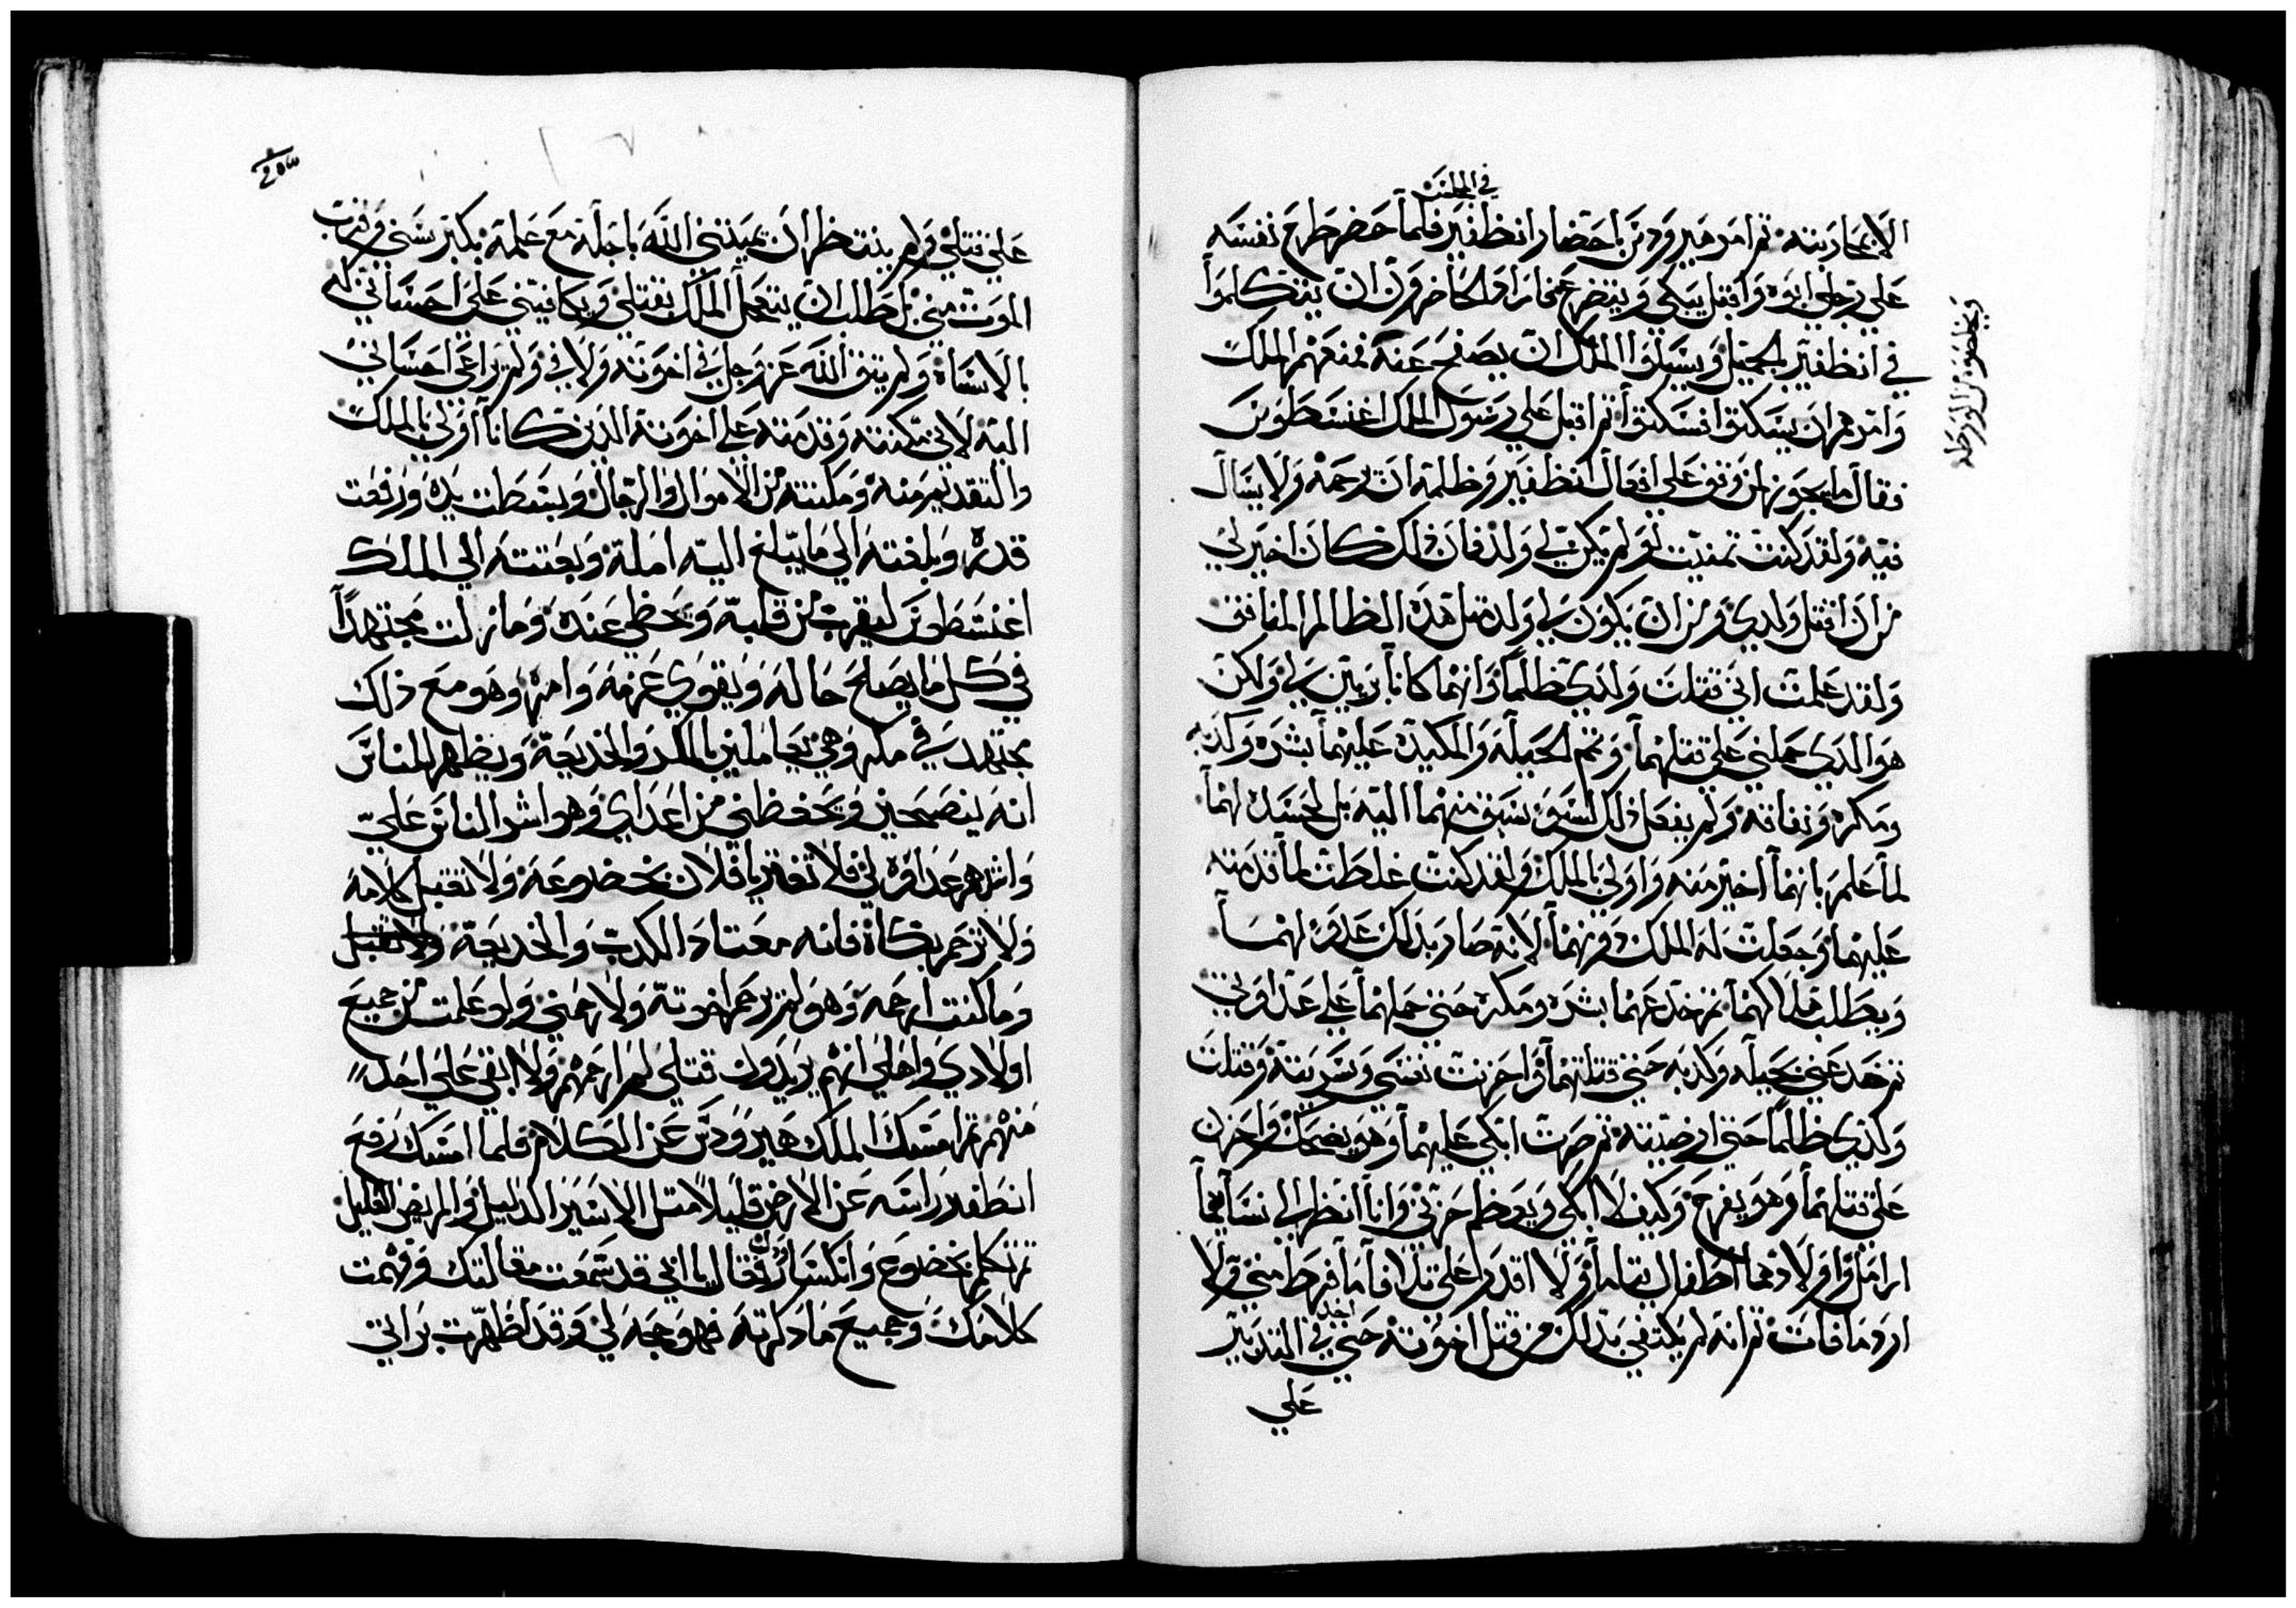 في المجلس
الا بمحاربته ثم امر هيرودس باحضار انظفير فلما حضر طرح نفسه
على رجلي ابوه واقبل يبكي ويتضرع فاراد الحاضرون ان يتكلموا
في انظفير بالجميل ويسيلوا الملك ان يصفح عنه فمنعهم الملك
وامرهم ان يسكتوا فسكتوا ثم اقبل على رسول الملك اغسطوس
فقال ما يجوز لمن وقف على افعال انظفير وظلمه ان يرحمه ولا يسال
فيه ولقد كنت تمنيت لو لم يكن لي ولد فان ذلك كان اخير لي
من ان اقتل ولدي ومن ان يكون لي ولد مثل هذا الظالم المنافق
ولقد علمت اني قتلت ولدي ظلما وانهما كانا بريين لي ولكن
هو الذي حملني على قتلهما وتمم الحيله والمكيدة عليهما بشره وكذبه
ومكره ونفاقه ولم يفعل ذلك لسوء سبق منهما اليه بل لحسده لهما
لما علم بانهما اخير منه واولى بالملك ولقد كنت غلطت لما قدمته
عليهما وجعلت له الملك دونهما لانه صار بذلك عدو لهما
ويطلب هلاكهما ثم خدعهما بشره ومكره حتى حملهما على عداوتي
ثم خدعني بحيله وكذبه حتى قتلتهما واحزنت نفسي وسريته وقتلت
ولدي ظلما حتى ارضيته ثم صرت ابكي عليهما وهو يضحك واحزن
على قتلهما وهو يفرح وكيف لا ابكي ويعظم حزني وانا انظر الى نساهما
ارامل واولادهما اطفال يتاما ولا اقدر على تلافا ما فرط مني ولا
ارد ما فات ثم انه لم يكتفي بذلك من قتل اخوته حتى اخد في التدبير
على
ويخلصوه من الورطه
على قتلي ولم ينتظر ان يميتني الله باجله مع علمه بكبر سني وقرب
الموت مني بل طلب ان يتعجل الملك بقتلي ويكافيني على احساني له
بالاساة ولم يتق الله عز وجل في اخوته ولا في ولم يراعى احساني
اليه لاني مكنته وقدمته على اخوته الذين كانا اولى بالملك
والتقديم منه ومكنته من الاموال والرجال وبسطت يده ورفعت
قدره وبلغته الي ما يبلغ اليه امله وبعتته الي الملك
اغسطوس ليقرب من قلبه ويحظى عنده وما زلت مجتهدا
في كل ما يصلح حاله ويقوي عزمه وامره وهو مع ذلك
مجتهد في مكره وهو يعاملني بالمكر والخديعة ويظهر للناس
انه ينصحني ويحفظني من اعداي وهو اشر الناس عليّ
واشدهم عداوه لي فلا تغتر يا فلان بخضوعه ولا تقبل كلامه
ولا ترحم بكاة فانه معتاد الكدب والخديعة ولا تقبل
وما كنت ارحمه وهو لم يرحم اخوته ولا رحمني ولو علمت من جميع
اولادي واهلي انهم يريدون قتلي لم ارحمهم ولا ابقي على احد
منهم ثم امسك الملك هيرودس عن الكلام فلما امسك رفع
انظفير راسه عن الارض قليلا متل الاسير الدليل والمريض القليل
ثم تكلم بخضوع وانكسار وقال يا ابي قد سمعت مقالتك وفهمت
كلامك وجميع ما دكرته فهو حجه لي وقد اظهرت براتي